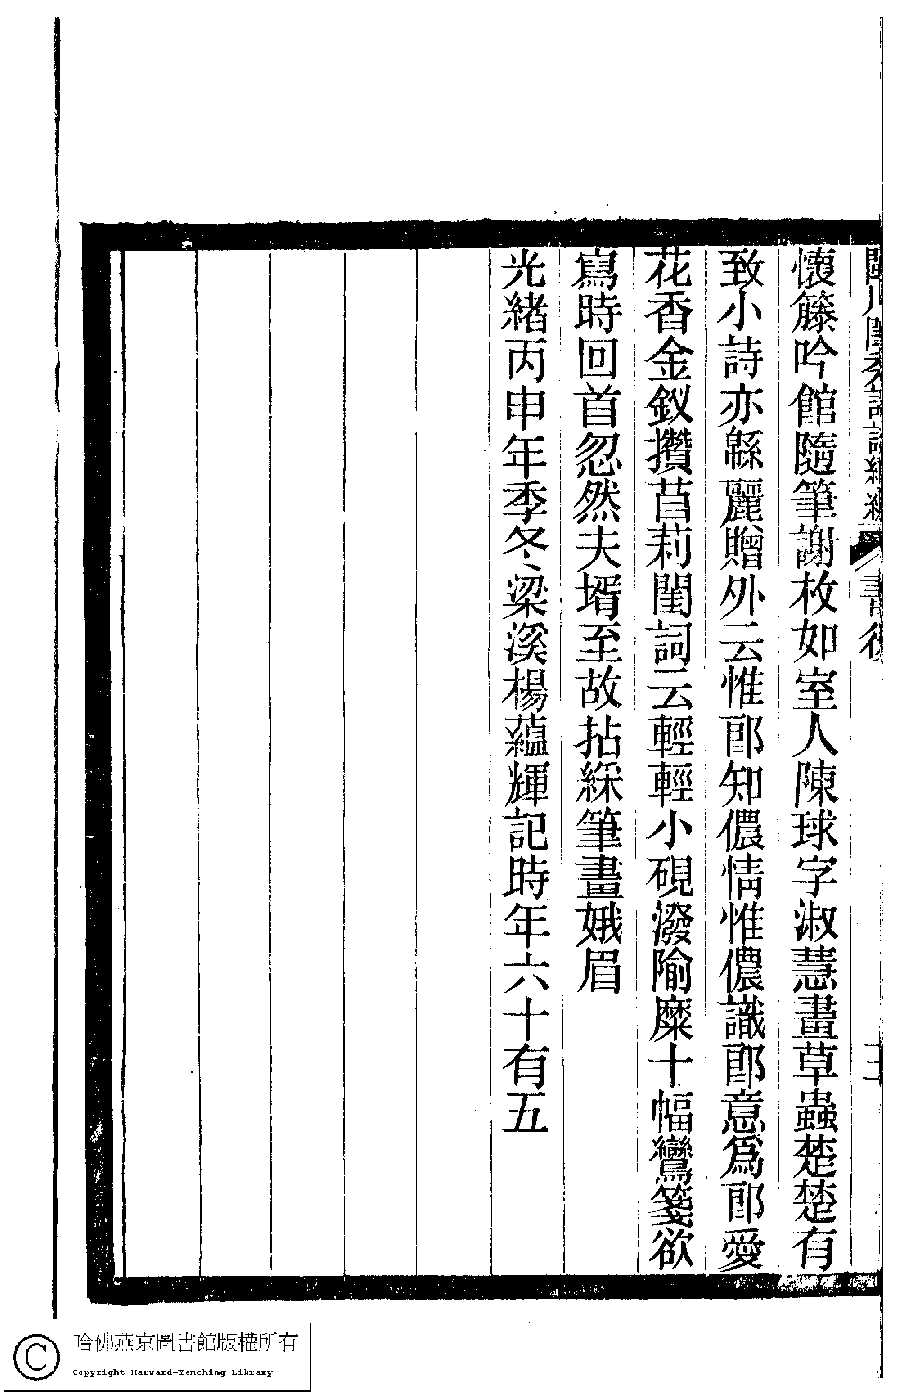 閩川閨秀詩話續編 書後 三
懷籐吟館隨筆謝枚如室人陳球字淑慧畫草蟲楚楚有
致小詩亦緜麗贈外云惟郎知儂情惟儂識郎意爲郎愛
花香金釵攢茝莉閨詞云輕輕小硯潑隃糜十幅鸞箋欲
寫時回首忽然夫壻至故拈綵筆畫娥眉
光緒丙申年季冬梁溪楊蘊輝記時年六十有五
哈佛燕京圖書館版權所有
Copyright Harvard-Yenching Library